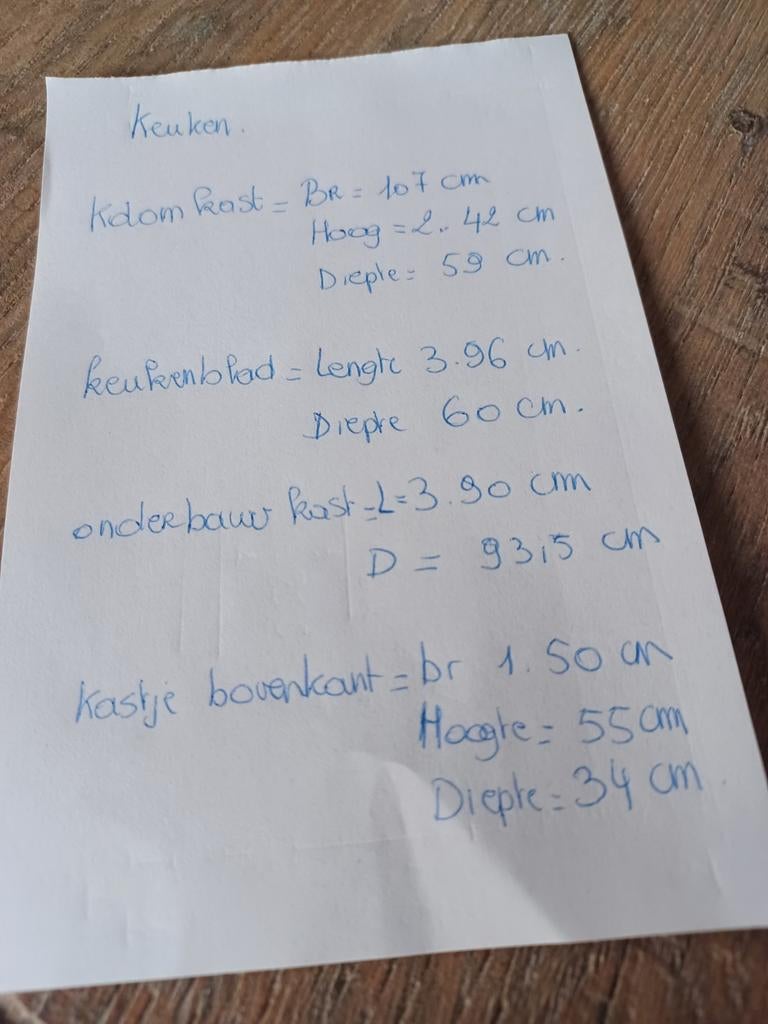 Keuken.
Kdom kast = BR = 107 cm
Hoog = 2.42 cm
Diepte = 59 cm.
keukenblad = Lengte 3.96 cm.
Diepte 60 cm.
onderbauw kast = L = 3.90 cm
D = 93,5 cm
Kastje bovenkant = br 1.50 cm
Hoogte = 55 cm
Diepte = 34 cm